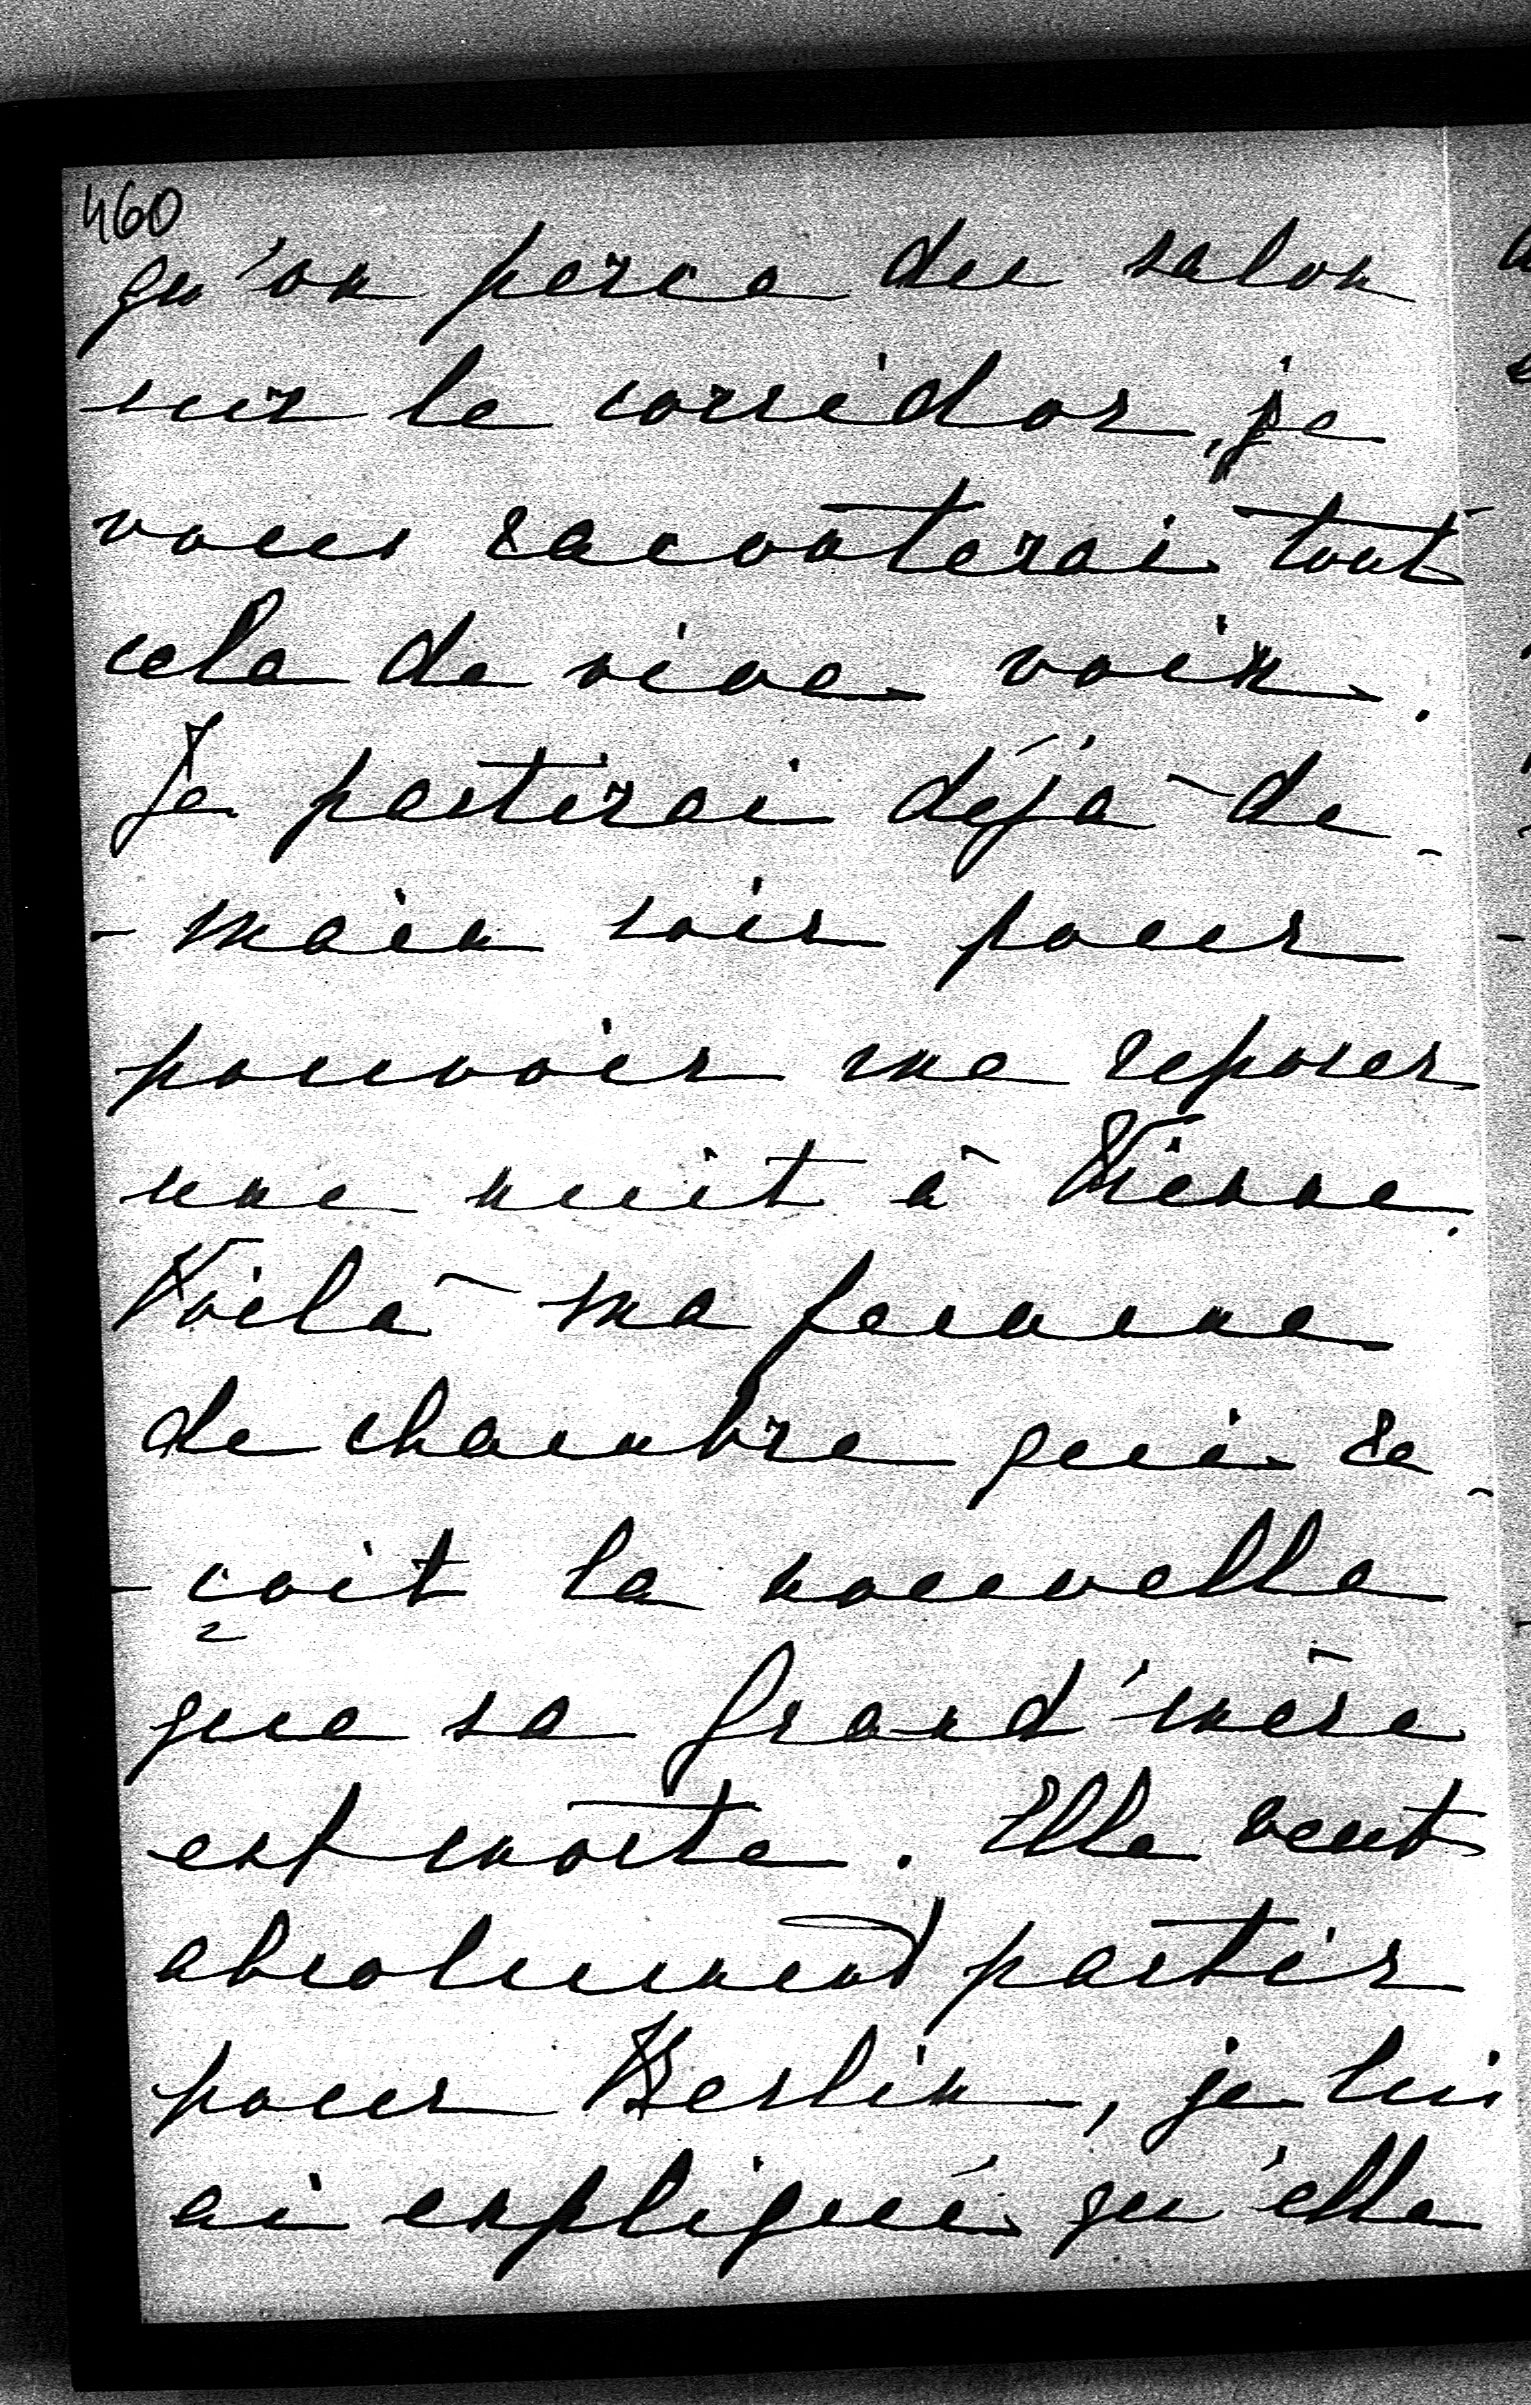 460
qu'on perce du salon
sur le corridor, je
vous raconterai tout
cela de vive voix.
Je partirai déjà de-
-main soir pour
pouvoir me reposer
une nuit à Vienne.
Voilà ma femme
de chambre qui re-
-çoit la nouvelle
que sa Grand'mère
est morte. Elle veut
absolument partir
pour Berlin, je lui
ai expliqué qu'elle